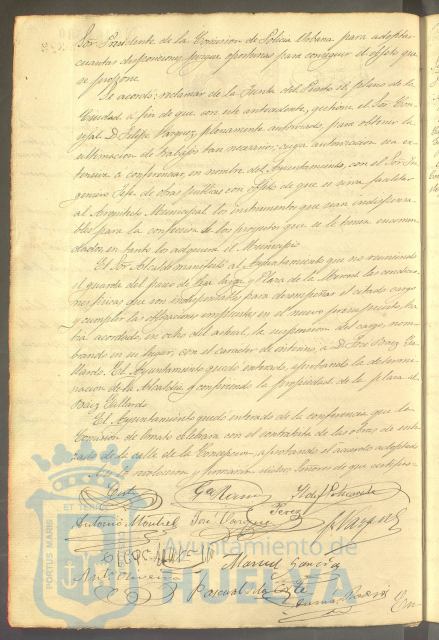 Sor. Presidente de la Comision de Policia Urbana para adoptar
cuantas disposiciones juzgue oportunas para conseguir el objeto que
se propone.
Se acordó: reclamar de la Junta del Puerto el plano de la
Ciudad a fin de que con este antecedente, gestione el Sor. Con-
cejal D. Felipe Vazquez, plenamente autorizado, para obtener la
ultimacion de trabajo tan necesario; cuya autorizacion sea ex-
tensiva a conferenciar, en nombre del Ayuntamiento, con el Sor. In-
geniero Jefe de obras publicas con objeto de que se sirva facilitar
al Arquitecto Municipal los instrumentos que sean indispensa-
bles para la confeccion de los proyectos que se le tienen encomen-
dados, en tanto los adquiera el Municipio
El Sor. Alcalde manifestó al Ayuntamiento que no reuniendo
el guarda del paseo de y Plaza de la Merced las condicio-
nes fisicas que son indispensables para desempeñar el citado cargo
y cumplir las obligaciones impuestas en el nuevo presupuesto, ha-
bia acordado, en ocho del actual, la suspension del cargo, nom-
brando en su lugar, con el caracter de interino, a D. José Baez Ga-
llardo. El Ayuntamiento quedó enterado, aprobando la determi-
nacion de la Alcaldia y confiriendo la propiedad de la plaza al
Baez Gallardo
El Ayuntamiento quedó enterado de la conferencia que la
Comision de Ornato celebrara con el contratista de las obras de
de la calle de la Concepcion, aprobando el acuerdo adoptado
Asi se y firmaron dichos Señores de que certifico=
Antonio Montiel José Vazquez Perez F. Vazquez
Manuel García
Ant. Oliveira Pascual
PORTUS MARIS ET TERRE
Ayuntamiento de
HUELVA